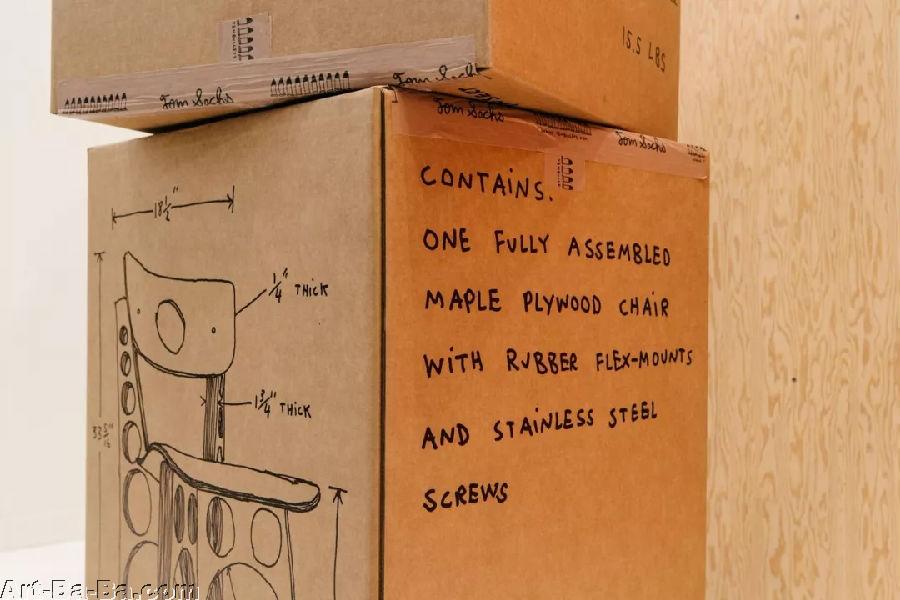 15.5 LBS
Tom Sachs Tom Sachs
Tom Sachs Tom Sachs
CONTAINS.
ONE FULLY ASSEMBLED
MAPLE PLYWOOD CHAIR
WITH RUBBER FLEX-MOUNTS
AND STAINLESS STEEL
SCREWS
18½"
¼" THICK
1¾" THICK
Art-Ba-Ba.com